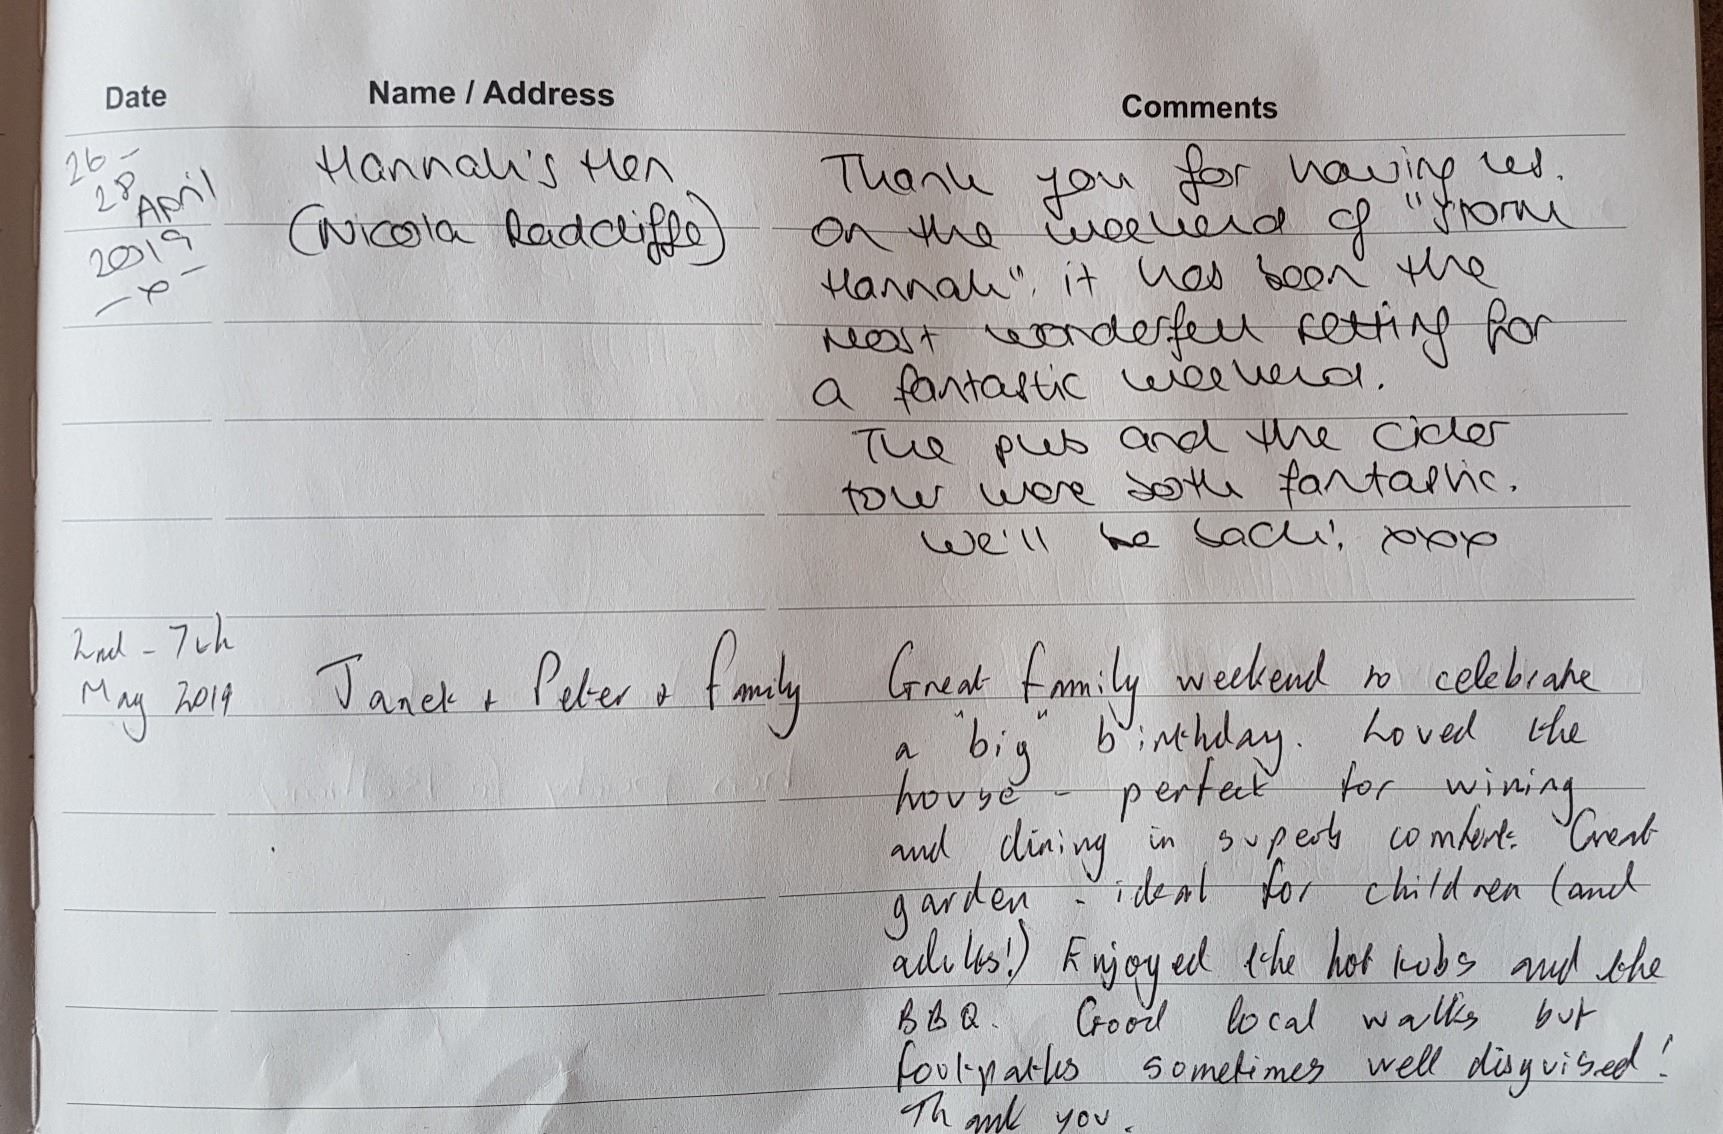 Date Name / Address Comments
26 -
28 April
2019
- x -
Hannah's Hen
(Nicola Radcliffe)
Thank you for having us.
On the weekend of "Storm
Hannah", it has been the
most wonderful setting for
a fantastic weekend.
The pub and the cider
tour were both fantastic.
We'll be back! xxxx
2nd - 7th
May 2019
Janet + Peter + family
Great family weekend to celebrate
a "big" birthday. Loved the
house - perfect for wining
and dining in superb comfort. Great
garden - ideal for children (and
adults!) Enjoyed the hot tubs and the
BBQ. Good local walks but
footpaths sometimes well disguised!
Thank you.